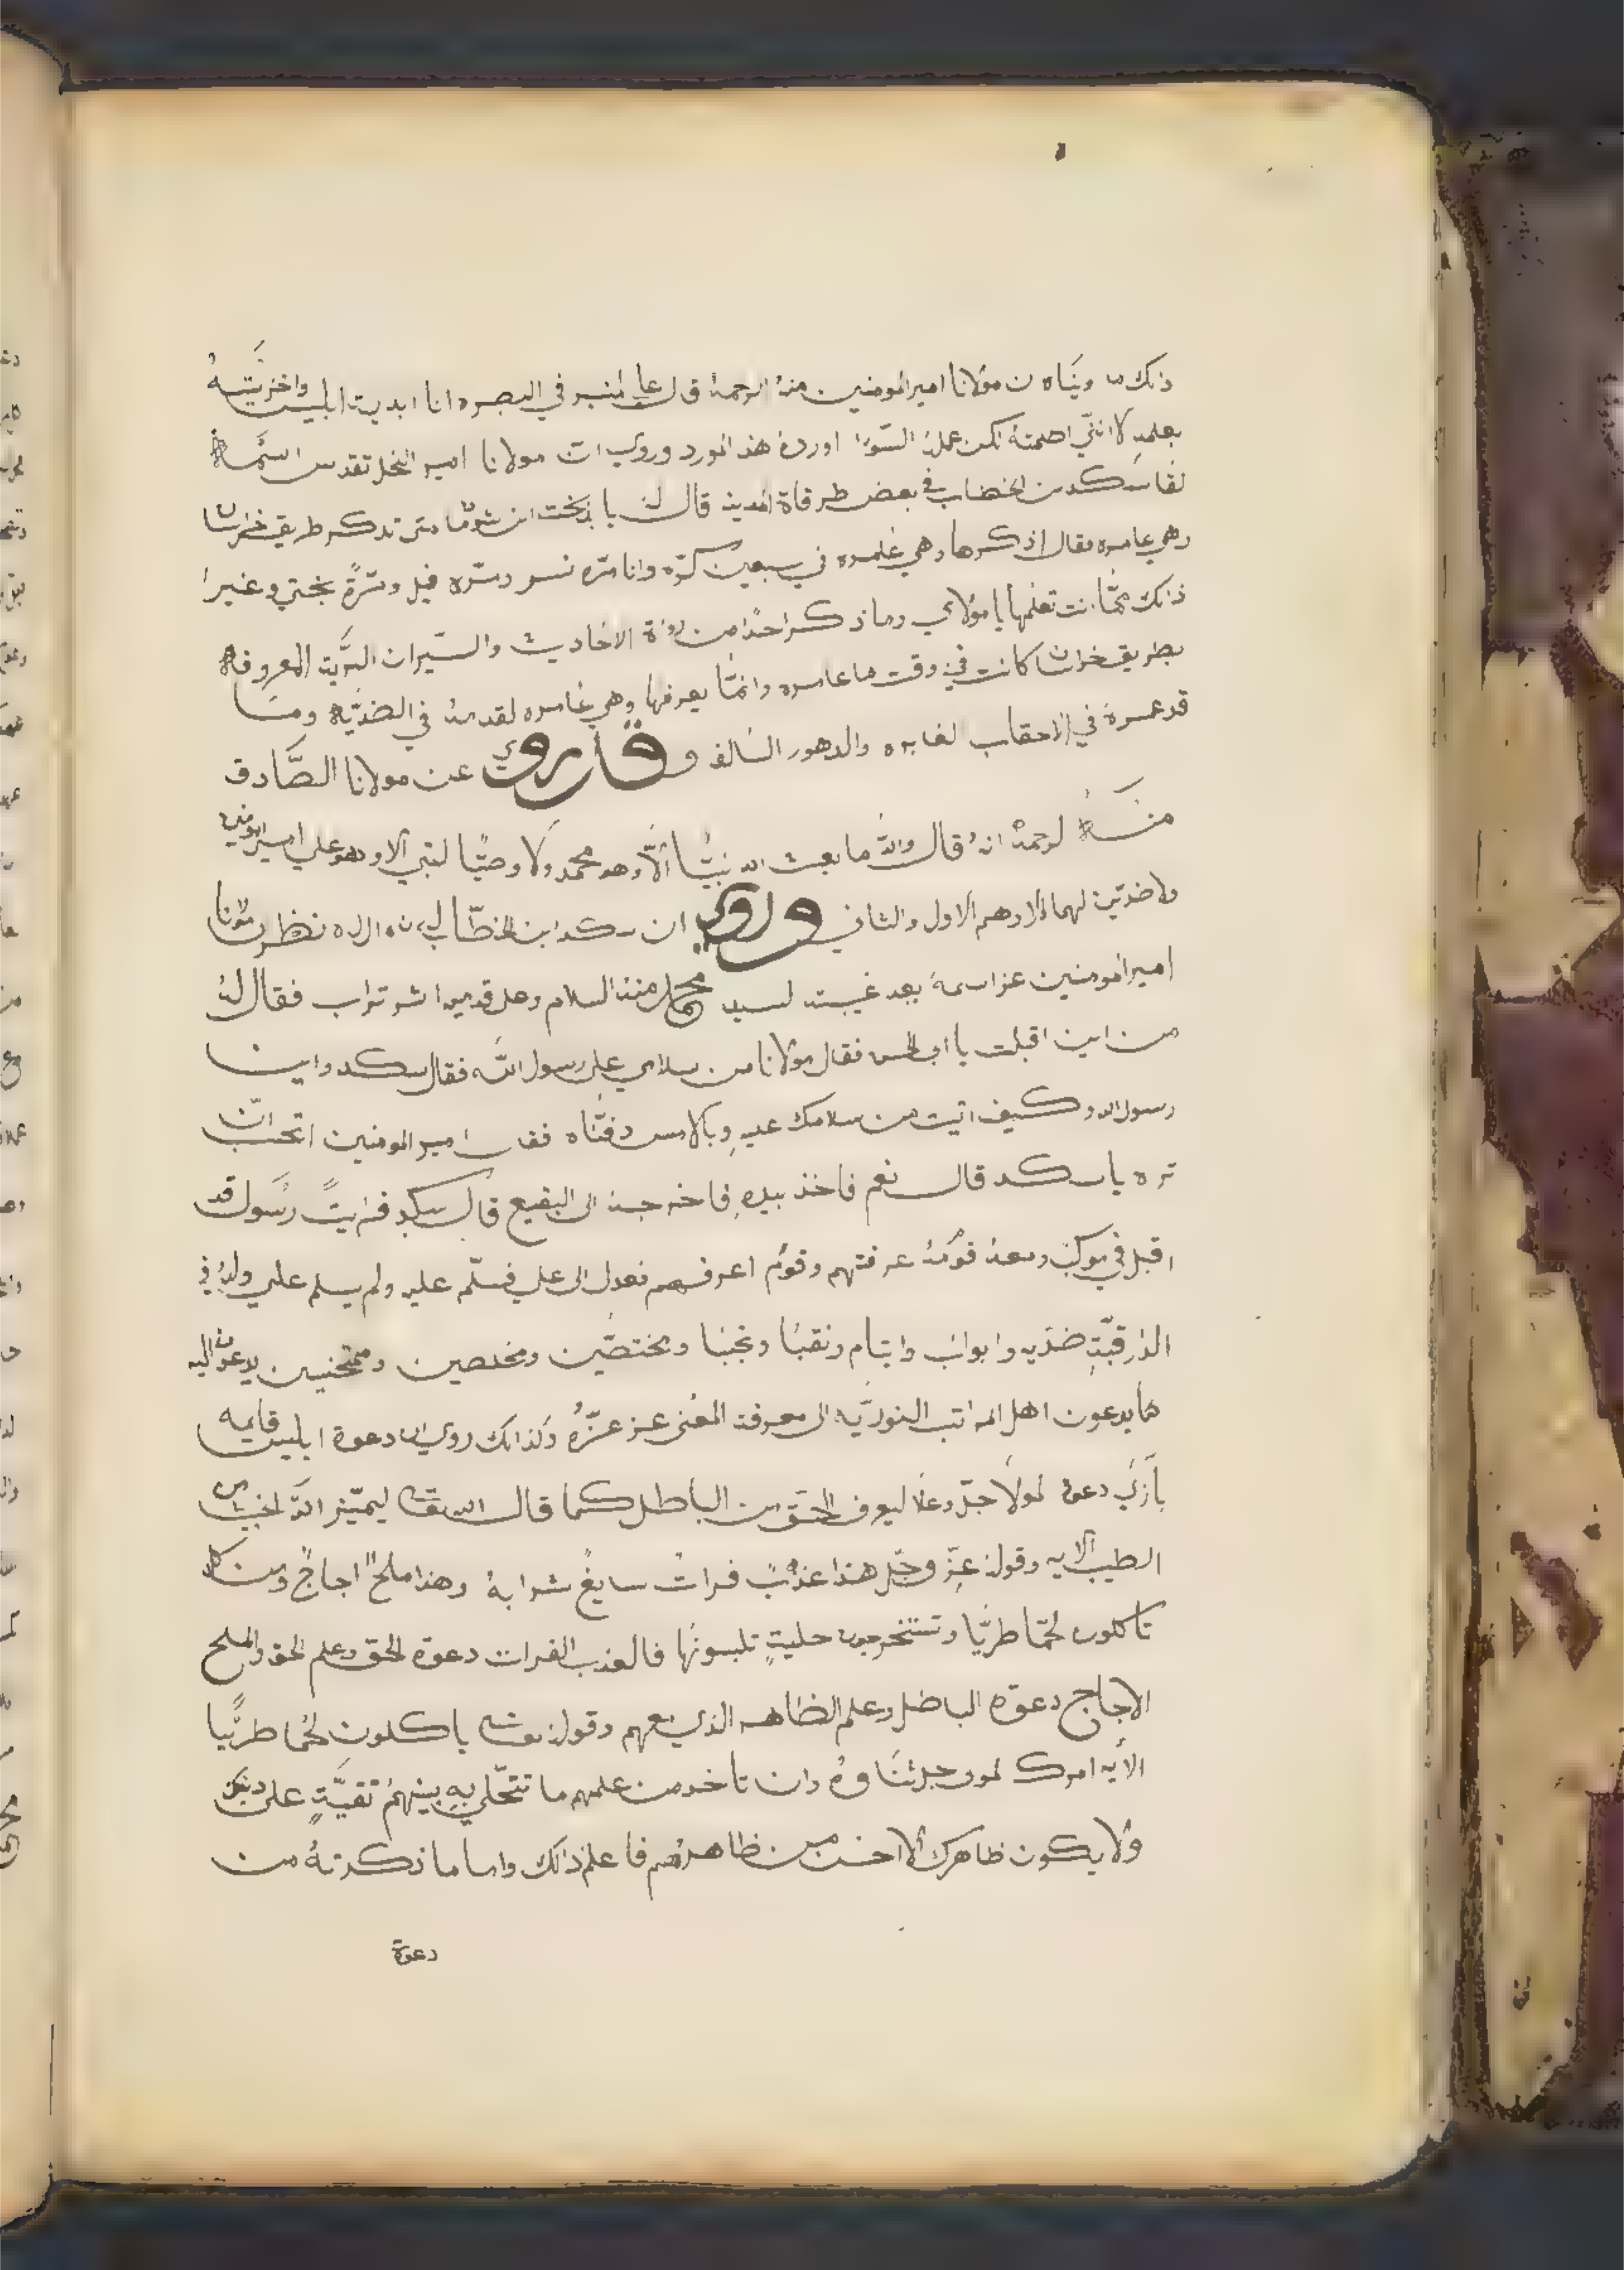 ذلك ونياه ن مولانا امير المومنين منه الرحمة قال على المنبر في البصره انا ابديت ابليس واخزيته
بعلمه لا انني اصمته لكن عمله السوء اورده هذ المورد وروي ان مولانا امير النحل تقدس اسمه
لقا سكد بن الخضاب في بعض طرقاة المدينه قال له يا متى تدكر طريق خراسان
وهي عامره فقال اذكرها وهي غامره في سبعين كرّه وانا مرّه نسر ومرّه فيل ومرّةً بختي وغير
ذلك ممّا انت تعلمها يا مولاي وما ذكر احدًا من رواة الاخاديث والسّيران البريّة المعروفه
بطريق خراسان كانت في وقت ما عامره وانمّا يعرفها وهي غامره لقدمه في الضديّه وما
قد عبرة في الاحقاب لغابره والدهور السالفه وقاروي عن مولانا الصَّادق
منه لرحمة انهُ قال والله ما بعث الله نبيًّا الّا وهو محمد ولا وصيًّا لنبي الا وهو علي امير المومنين
ولا ضدّين لهما الا وهم الاول والثاني وروي ان سكد ابن الخطّاب نظر مولانا
امير المومنين عز اسمهُ بعد غيبته لسيد محمد منه السلام وعلى قدميه اثر تراب فقال لهُ
من اين اقبلت يا ابى الحسن فقال مولانا من سلامي على رسول اللّه فقال سكد واين
رسول الله وكيف اتيت من سلامك عليهِ وبالامس دفنّاه فقال امير المومنين اتحب انّ
تره يا سكد قال نعم فاخذ بيدهِ فاخرجه الى البقيع قال سكد فرايتً رسُول قد
اقبل في موكب ومعهُ قومٌ عرفتهم وقومٌ اعرفهم فعدل الى علي فسلّم عليه ولم يسلم علي ولهُ في
الذرقبّةِ ضدّيه وابواب وايتام ونقبا ونجبا ومختصّين ومخلصين وممتحنين يدعون اليه
كما يدعون اهل المراتب النوريّه الى معرفة المعنى عز عزّهُ وكذالك روي ان دعوة ابليس قايمه
بأزاي دعوة لمولا جلّ وعلا ليعرف الحق من الباطل كما قال الله تعالى ليميّز اللّه لخبيث من
الطيب الايه وقوله عزّ وجّل هذا عذبٌ فراتٌ سايغٌ شرابهُ وهذا ملحٌ اجاجٌ ومن كل
تاكلون لحمًا طريًّا وتستخرجون حليةٍ تلبسونها فالعذب الفرات دعوة الحق وعلم الحق والملح
الاجاج دعوة الباطل وعلم الظاهر الذي معهم وقوله تعالى ياكلون لحمًا طريًّا
الايه امرك لمولى جل ثناوهُ وان تاخد من علمهم ما تتحلي بهِ بينهمُ تقيّةٍ على دينك
ولا يكون ظاهرك الا احسن من ظاهرهم فاعلم ذالك واما ما ذكرتهُ من
دعوة